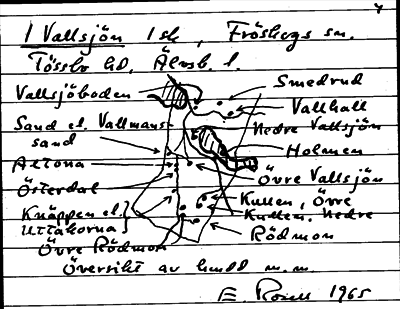 1 Vallsjön 1 sk, Fröskogs sn.
Tössbo hd, Älvsb. l.
Vallsjöboden
Smedrud
Vallhall
Sand el. Vallmans
sand
Nedre Vallsjön
Holmen
Altona
Övre Vallsjön
Österdal
Kullen, Övre
Knäppen el.
Kullen, Nedre
Uttakorna
Rödmon
Övre Rödmon
Översikt av m.m.
E. 1965